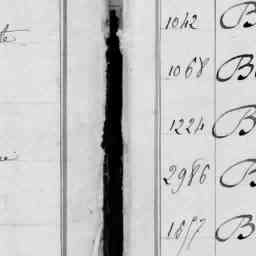 te
1042 B
1068 B
1224 B
2986 B
1657 B